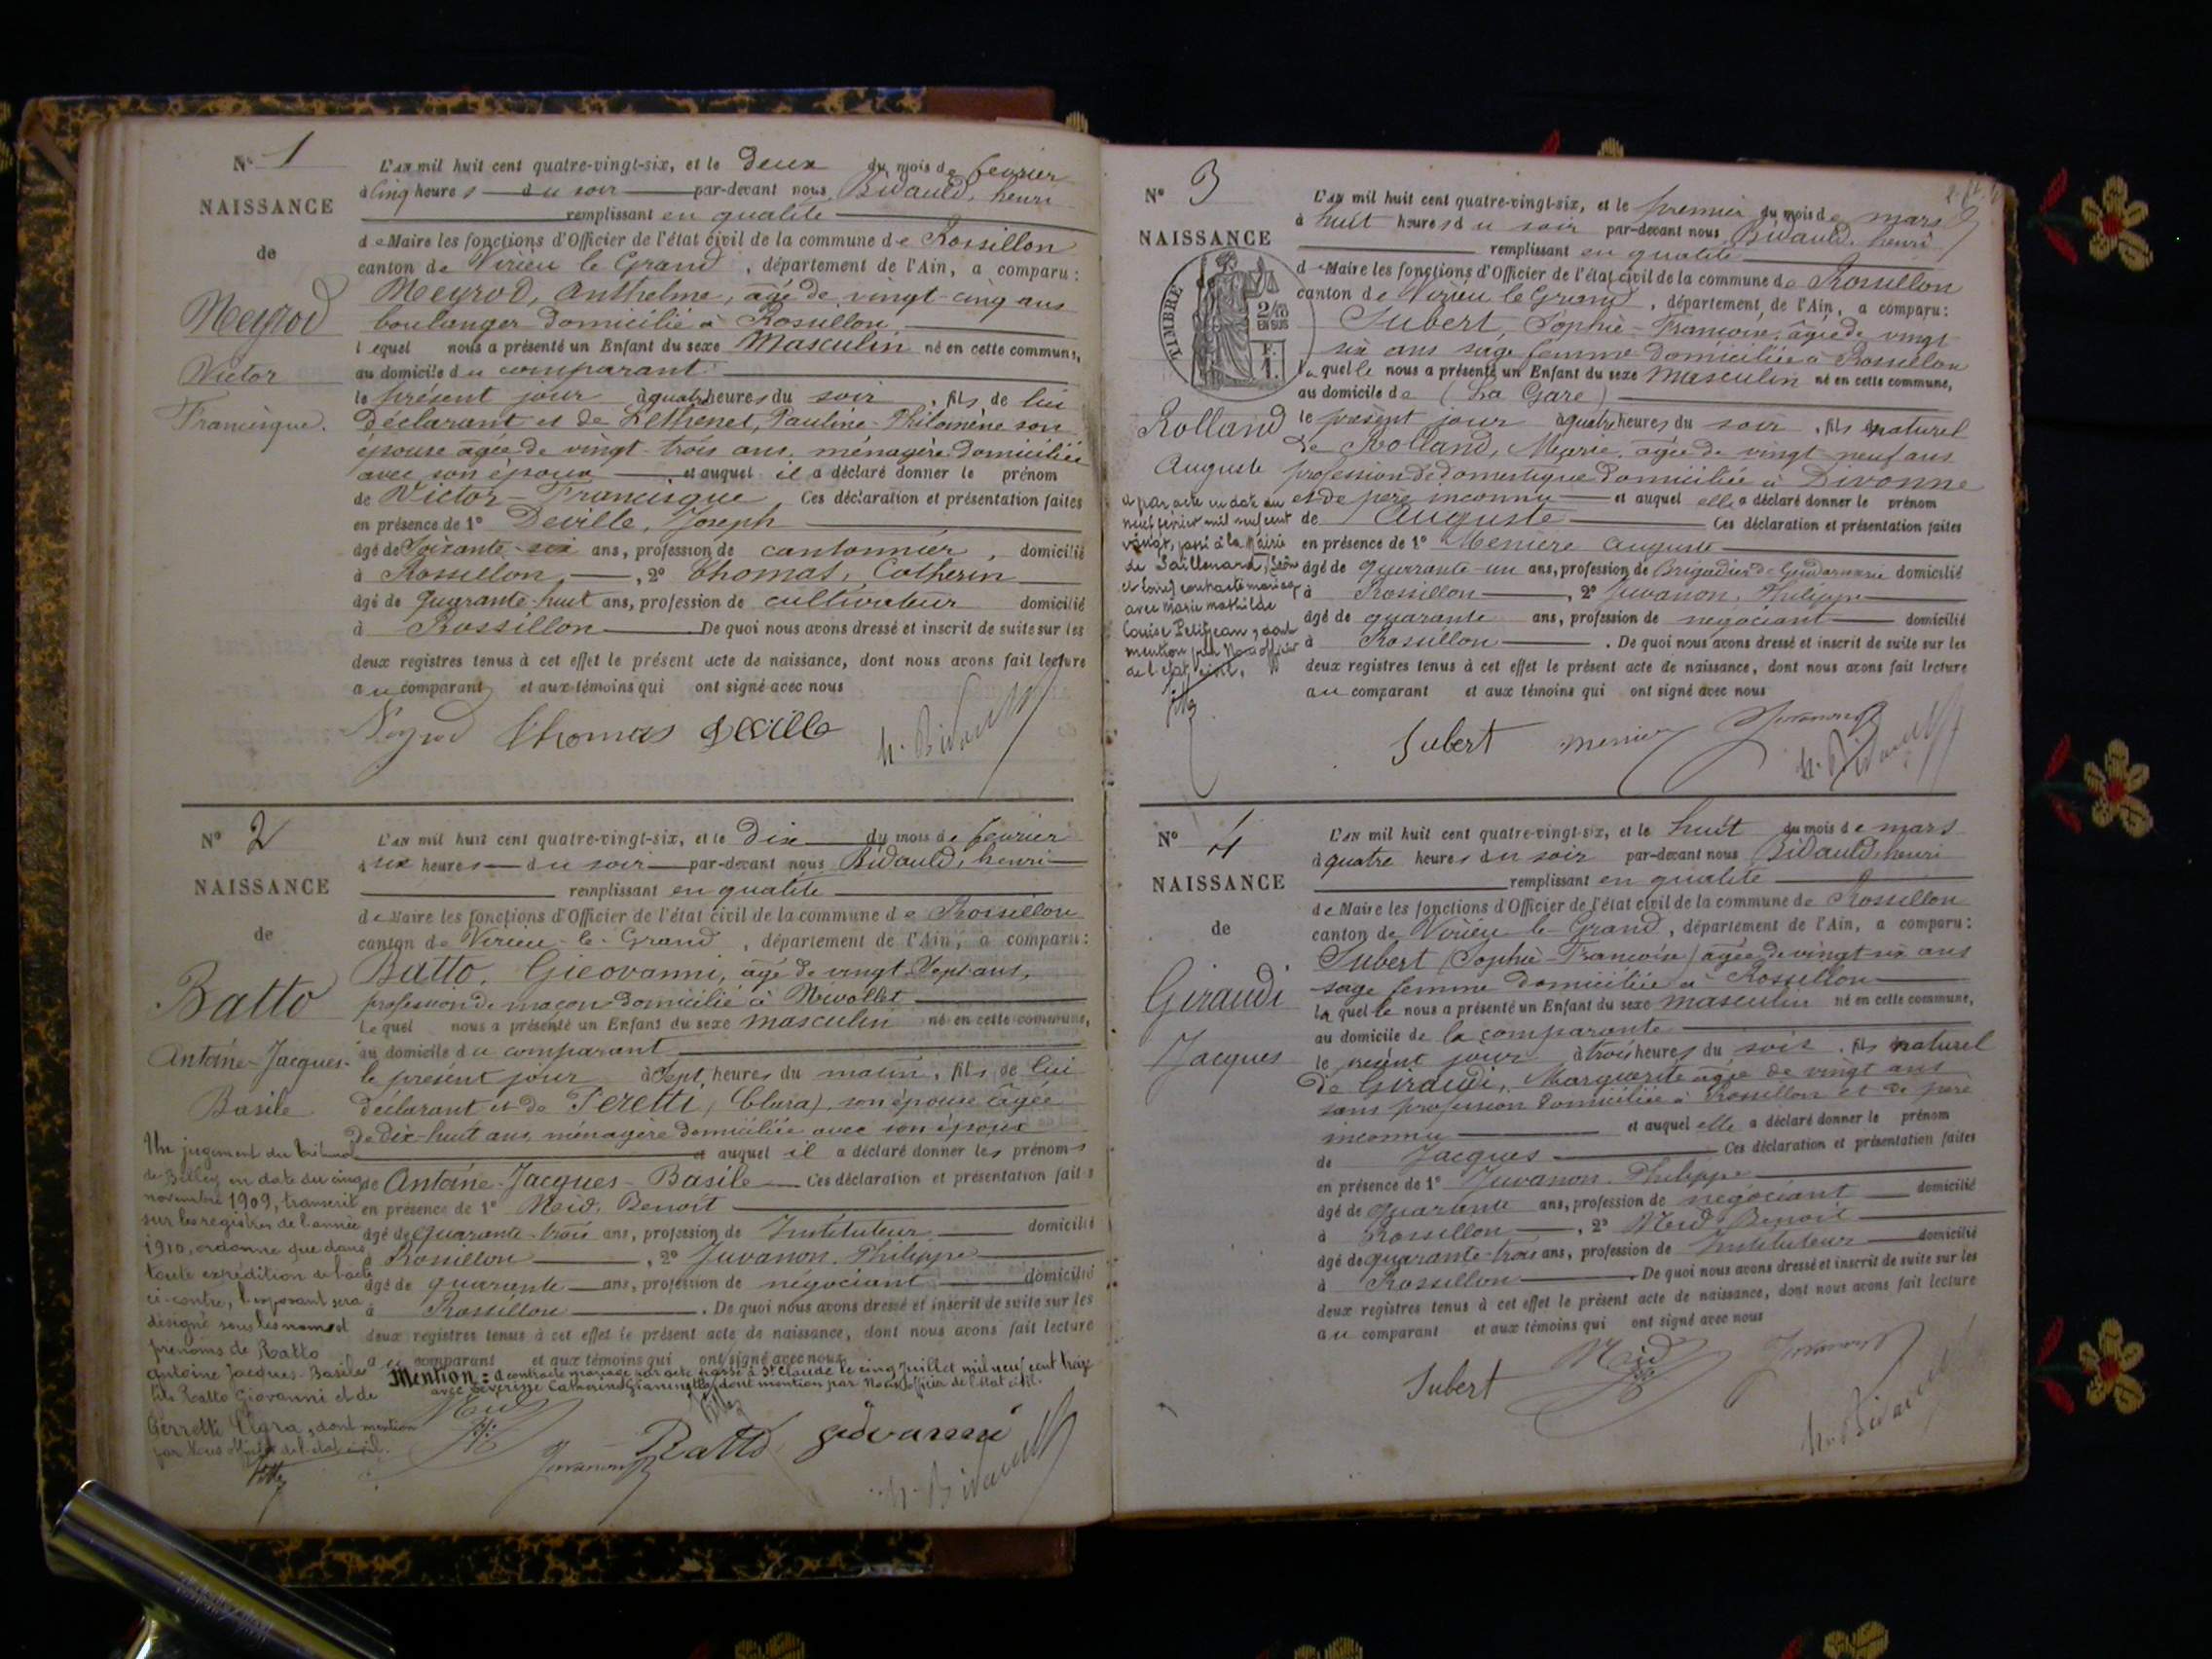 N° 1
NAISSANCE
de
Meyrod
Victor
Francisque.
L'AN mil huit cent quatre-vingt-six, et le deux du mois de fevrier
à cinq heures du soir par-devant nous Bidauld, henri
remplissant en qualité
de Maire les fonctions d'Officier de l'état civil de la commune de Rossillon
canton de Virieu le Grand, département de l'Ain, a comparu:
Meyrod, Anthelme, âgé de vingt-cinq ans
boulanger domicilié à Rossillon
lequel nous a présenté un Enfant du sexe Masculin né en cette commune,
au domicile du comparant
le présent jour à quatre heures du soir, fils de lui
déclarant et de Lethenet, Pauline-Philomène son
épouse agée de vingt-trois ans, ménagère domiciliée
avec son époux et auquel il a déclaré donner le prénom
de Victor-Francisque Ces déclaration et présentation faites
en présence de 1° Deville, Joseph
âgé de Soixante-six ans, profession de cantonnier, domicilié
à Rossillon, 2° Thomas, Catherin
âgé de quarante-huit ans, profession de cultivateur domicilié
à Rossillon De quoi nous avons dressé et inscrit de suite sur les
deux registres tenus à cet effet le présent acte de naissance, dont nous avons fait lecture
au comparant et aux témoins qui ont signé avec nous
Meyrod Thomas Deville H. Bidauld
N° 2
NAISSANCE
de
Ratto
Antoine-Jacques-
Basile
Un jugement du Tribunal
de Belley en date du cinq
novembre 1909, transcrit
sur les registres de l'année
1910, ordonne que dans
toute expédition de l'acte
ci-contre, l'exposant sera
désigné sous les noms et
prénoms de Ratto
Antoine Jacques-Basile
fils Ratto Giovanni et de
dont mention
par Nous officier de l'état civil.
L'AN mil huit cent quatre-vingt-six, et le Dix du mois de fevrier
à six heures du soir par-devant nous Bidauld, henri
remplissant en qualité
de Maire les fonctions d'Officier de l'état civil de la commune de Rossillon
canton de Virieu-le-Grand, département de l'Ain, a comparu:
Batto, Gieovanni, âgé de vingt-sept ans,
profession de maçon domicilié à Nivollet
Lequel nous a présenté un Enfant du sexe masculin né en cette commune,
au domicile du comparant
le présent jour à Sept heures du matin, fils de lui
déclarant et de Peretti, (Clara), son épouse âgée
de dix-huit ans, ménagère domiciliée avec son époux
et auquel il a déclaré donner les prénoms
de Antoine-Jacques-Basile Ces déclaration et présentation faites
en présence de 1° Neid, Benoît
âgé de quarante-trois ans, profession de Instituteur domicilié
à Rossillon, 2° Juvanon, Philippe
âgé de quarante ans, profession de négociant domicilié
à Rossillon. De quoi nous avons dressé et inscrit de suite sur les
deux registres tenus à cet effet le présent acte de naissance, dont nous avons fait lecture
au comparant et aux témoins qui ont signé avec nous
Mention: a contracté mariage par acte passé à St Claude le cinq juillet mil neuf cent treize
avec Séverine Catherine dont mention par Nous officier de l'état civil.
Neid
Juvanon Ratto giovanni
H. Bidauld
N° 3
NAISSANCE
de
TIMBRE
2/10
EN SUS
F.
1.
Rolland
Auguste
a par acte en date du
neuf février mil neuf cent
vingt, passé à la Mairie
de Saillenard (Saône
et Loire) contracté mariage
avec Marie Mathilde
Louise Petitjean, dont
mention par Nous officier
de l'état civil.
L'AN mil huit cent quatre-vingt-six, et le premier du mois de mars
à huit heures du soir par-devant nous Bidauld, henri
remplissant en qualité
de Maire les fonctions d'Officier de l'état civil de la commune de Rossillon
canton de Virieu le Grand, département de l'Ain, a comparu:
Jubert, Sophie-Françoise, âgée de vingt
six ans sage femme domiciliée à Rossillon
laquelle nous a présenté un Enfant du sexe masculin né en cette commune,
au domicile de (La Gare)
le présent jour à quatre heures du soir, fils naturel
de Rolland, Marie, âgée de vingt-neuf ans
profession de domestique domiciliée à Divonne
et de père inconnu et auquel elle a déclaré donner le prénom
de Auguste Ces déclaration et présentation faites
en présence de 1° Menière Auguste
âgé de quarante-un ans, profession de Brigadier de Gendarmerie domicilié
à Rossillon, 2° Juvanon, Philippe
âgé de quarante ans, profession de négociant domicilié
à Rossillon. De quoi nous avons dressé et inscrit de suite sur les
deux registres tenus à cet effet le présent acte de naissance, dont nous avons fait lecture
au comparant et aux témoins qui ont signé avec nous
Jubert Menière Juvanon
H. Bidauld
N° 4
NAISSANCE
de
Giraudi
Jacques
L'AN mil huit cent quatre-vingt-six, et le huit du mois de mars
à quatre heures du soir par-devant nous Bidauld, henri
remplissant en qualité
de Maire les fonctions d'Officier de l'état civil de la commune de Rossillon
canton de Virieu le Grand, département de l'Ain, a comparu:
Jubert (Sophie-Françoise) âgée de vingt-six ans
sage femme domiciliée à Rossillon
laquelle nous a présenté un Enfant du sexe masculin né en cette commune,
au domicile de la comparante
le présent jour à trois heures du soir, fils naturel
de Giraudi, Marguerite âgée de vingt ans
sans profession domiciliée à Rossillon et de père
inconnu et auquel elle a déclaré donner le prénom
de Jacques Ces déclaration et présentation faites
en présence de 1° Juvanon, Philippe
âgé de quarante ans, profession de négociant domicilié
à Rossillon, 2° Neid, Benoît
âgé de quarante-trois ans, profession de Instituteur domicilié
à Rossillon. De quoi nous avons dressé et inscrit de suite sur les
deux registres tenus à cet effet le présent acte de naissance, dont nous avons fait lecture
au comparant et aux témoins qui ont signé avec nous
Jubert Neid Juvanon
H. Bidauld